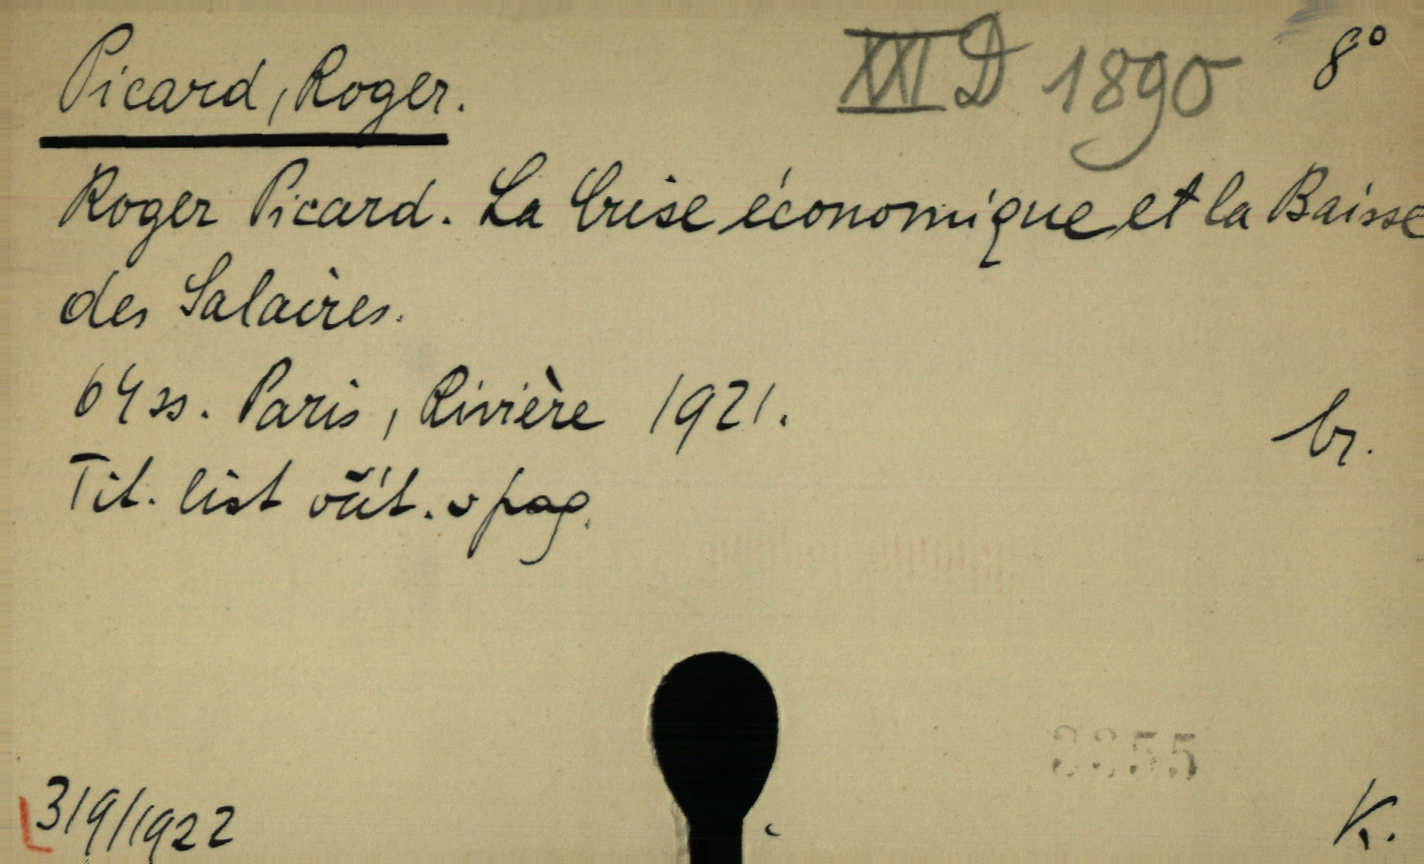 Picard, Roger.
XXI D 1890
8°
Roger Picard. La Crise économique et la Baisse
des Salaires.
64 ss. Paris, Rivière 1921.
br.
Tit. list včít. v pag.
3355
319/1922
K.